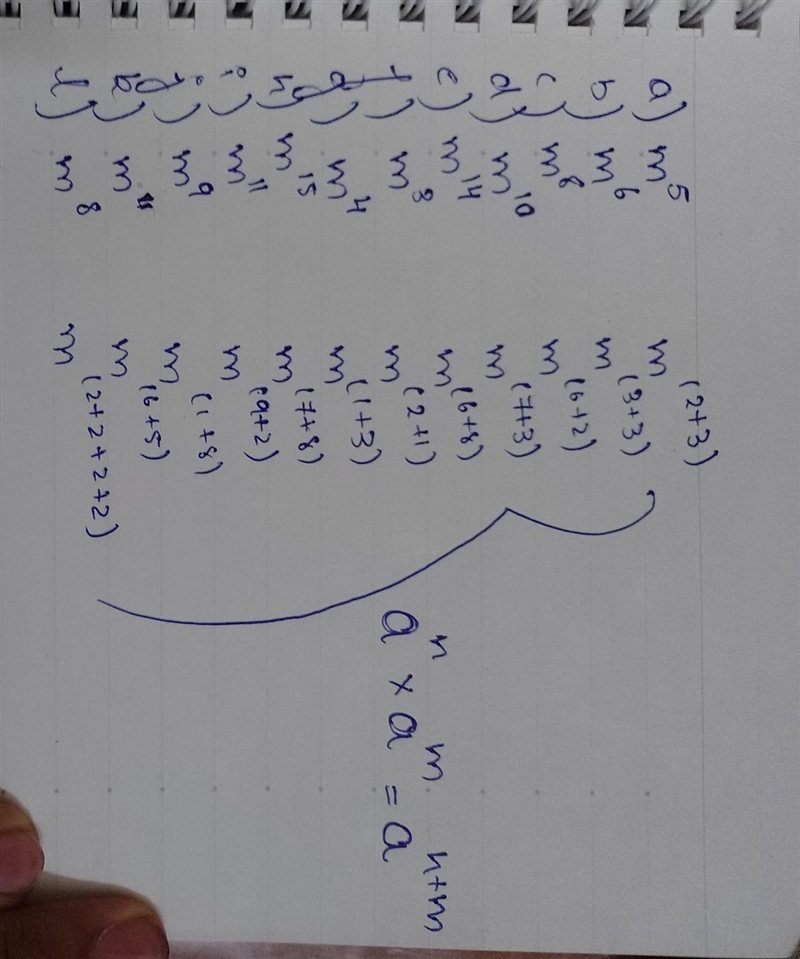 a) m^5 m^(2+3)
b) m^6 m^(3+3)
c) m^8 m^(6+2)
d) m^10 m^(7+3)
e) m^14 m^(6+8)
f) m^3 m^(2+1)
) m^4 m^(1+3)
h) m^15 m^(7+8)
i) m^11 m^(9+2)
) m^9 m^(1+8)
) m^11 m^(6+5)
) m^8 m^(2+2+2+2)
a^n × a^m = a^n+m